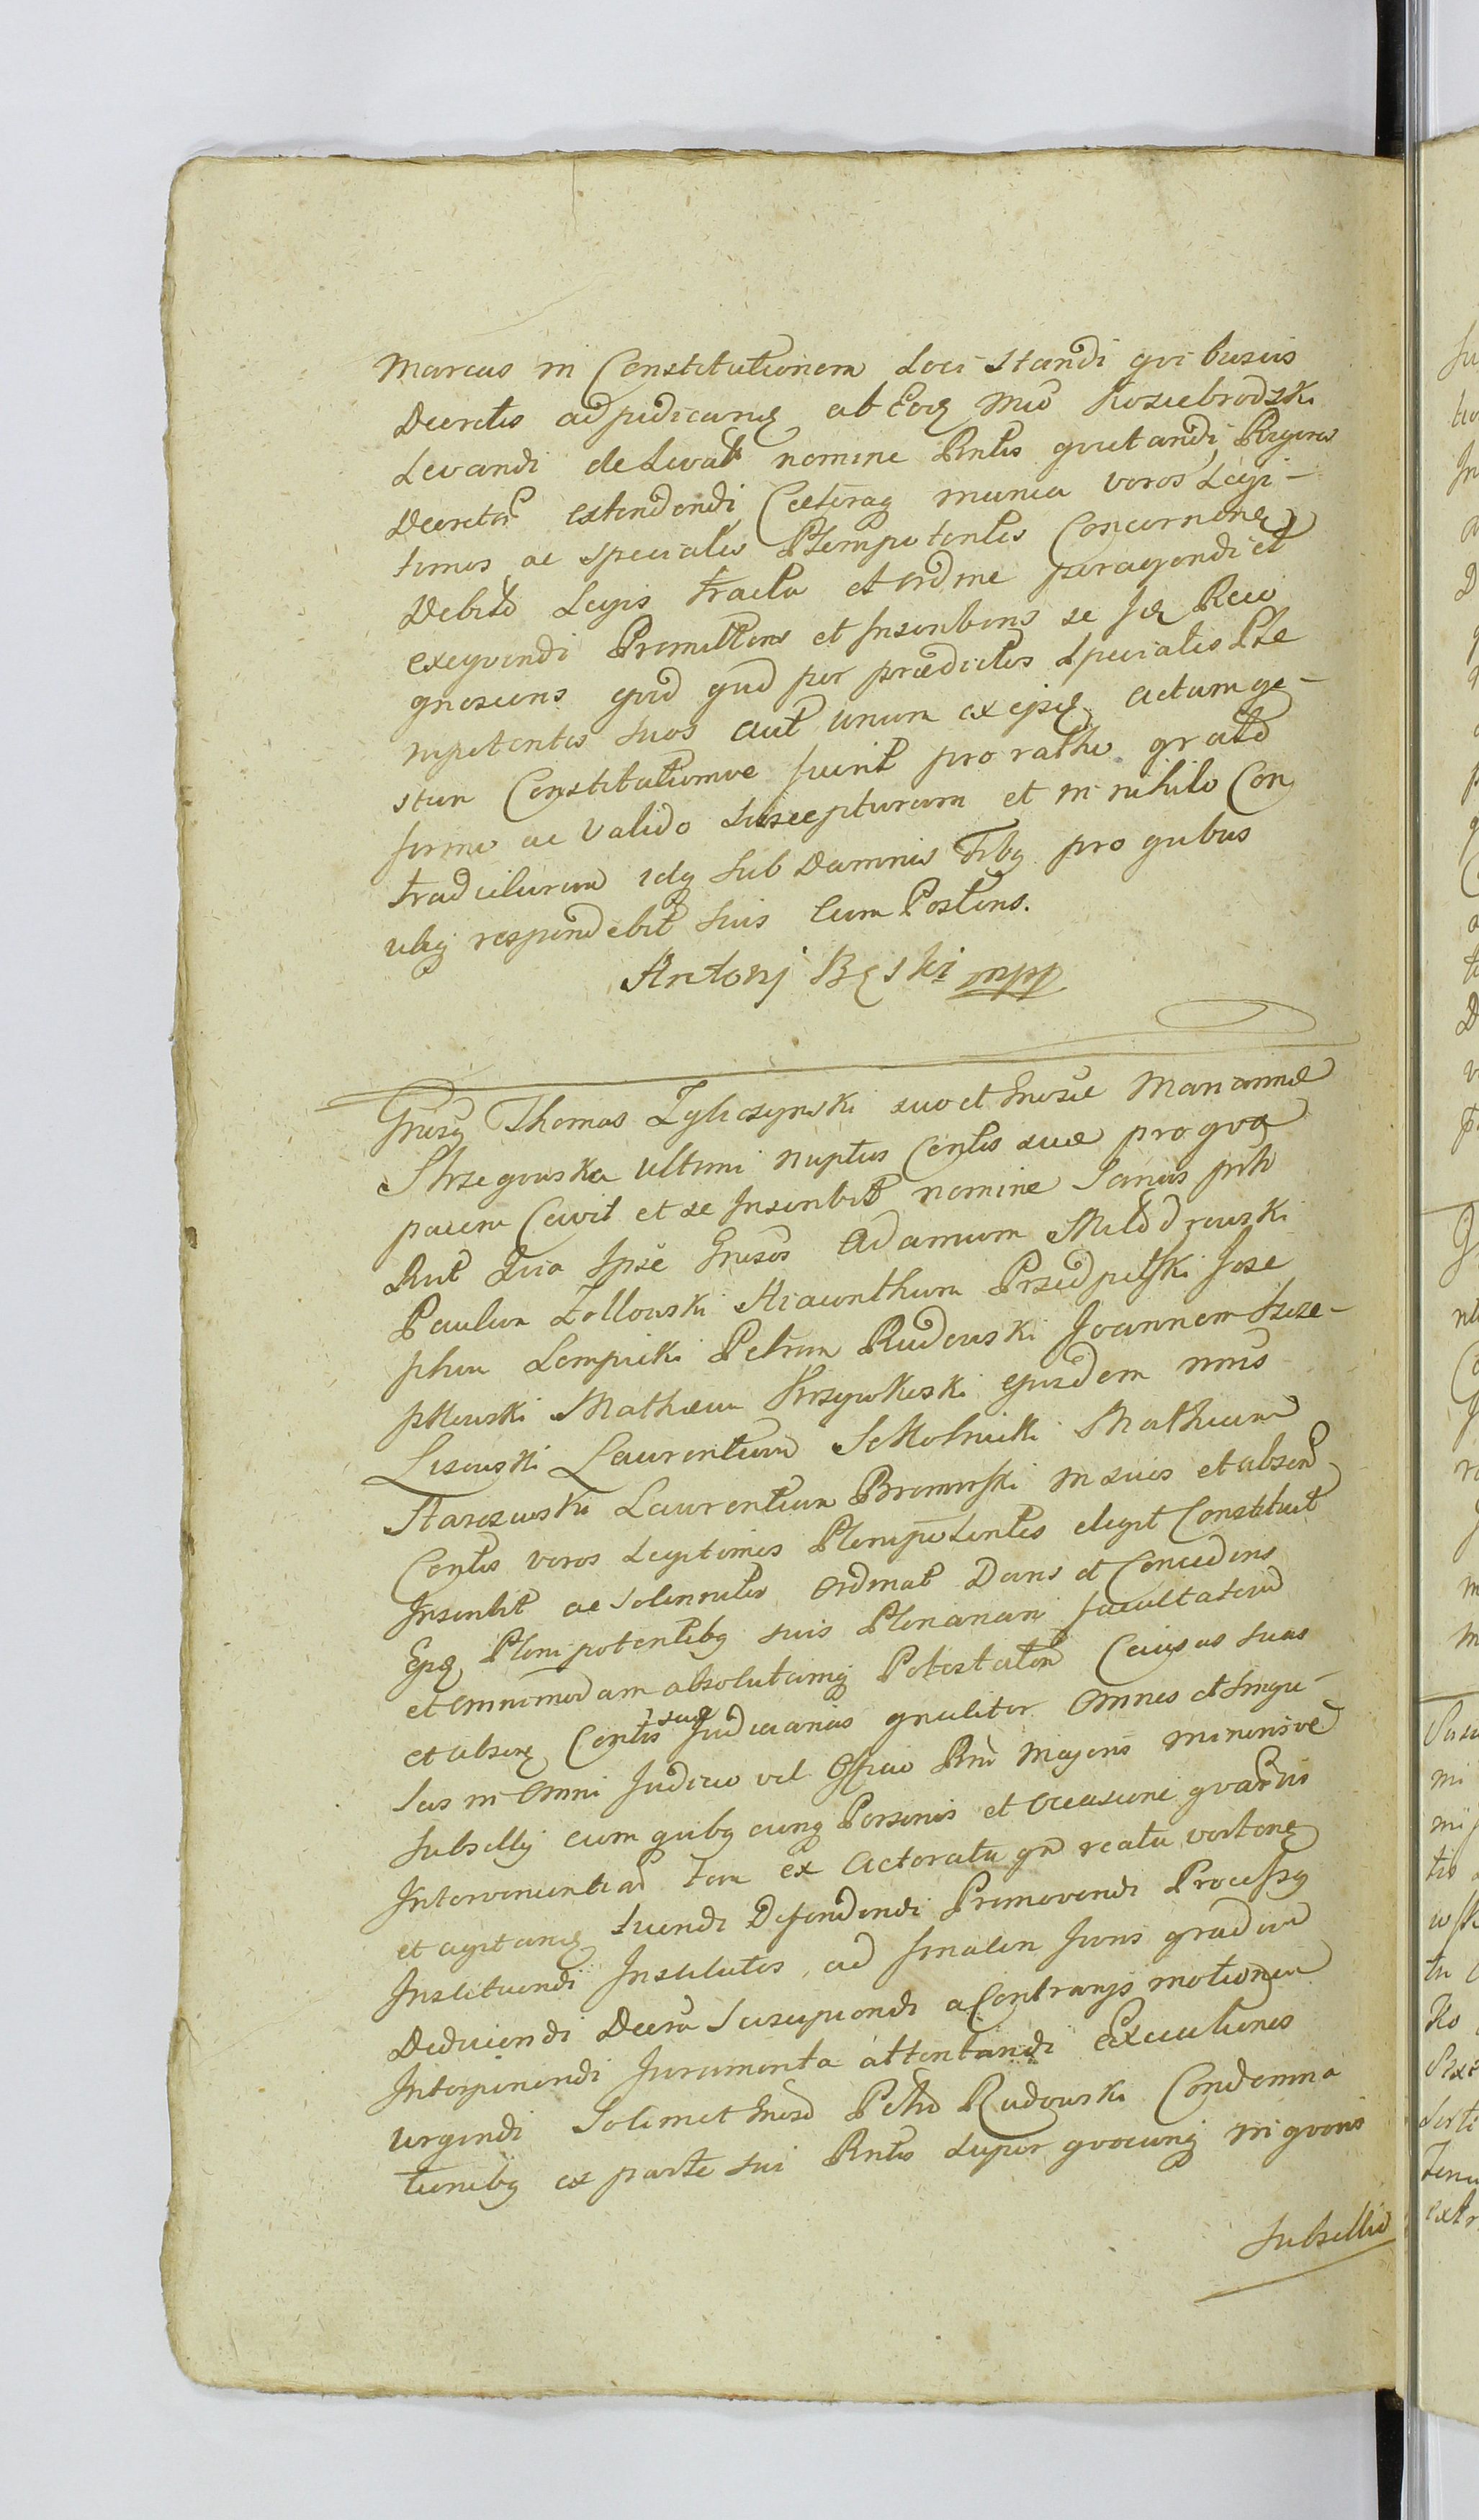 Marcas in Constitutionem Loci standi quibusvis
Decretis adjudicatis ab Eod Mco Kosiebrodzki
Levandi de Levat nomine Rntis quietandi, Rigores
Decretor extendendi Caeteraq munia veros Legi-
timos ac speciales Plenipotentes Concernen
Debito Legis tractu et ordine peragendi et
exequendi Promittens et Inscribens se Reco
gnoscens quid quid per praedictos Speciales Ple
nipotentes suos aut unum ex ipsis actum ge-
stum Constitutumve fuerit pro ratho grato
firmo ac valido suscepturum et in nihilo Con
tradicturum idq sub Damnis Trbq pro quibus
ubiq respondebit suis Cum Posteris.
Antonj Bęski mpp
Grnsus Thomas Zyliczynski suo et Gnosae Mariannae
Strzegowska ultimi nuptus Contis suae pro qva
pacem Cavit et se Inscribit nomine Sanus pnto
Rnt Quia Ipse Gnosos Adamum Młodrowski
Paulum Zołłowski Hiacynthum Przedpełski Jose
phum Lempicki Petrum Rudowski Joannem Szcze-
pkowski Mathaeum Krzywkowski ejusdem nnis
Lisowski Laurentium Schołnicki Mathaeum
Staroszewski Laurentium Bromirski in suis et absen
Contis veros Legitimos Plenipotentes elegit Constituit
Inscribit ac solenniter Ordinat Dans et Concedens
Ejsd Plenipotentibq suis Plenariam facultatem
et omnimodam absolutamq Potestatem Causas suas
et absen Contis suae Judiciarias gnaliter Omnes et singu-
las in Omni Judicio vel Officio Rni Majoris minorisve
Subsellij cum quibq cunq Personis et Occasione quavis
Intervenientia tam ex Actoratu qm reatu verten
et agitan tuendi Defendendi Promovendi Processq
Instituendi Institutos ad finalem Juris gradum
Deducendi Decra Suscipiendi a Contrarijs motionem
Interponendi Juramenta attentandi Executiones
urgendi Solimet Gnoso Petro Rudowski Condemna
tionibq ex parte sui Rntis super quocunq in quovis
Subsellio